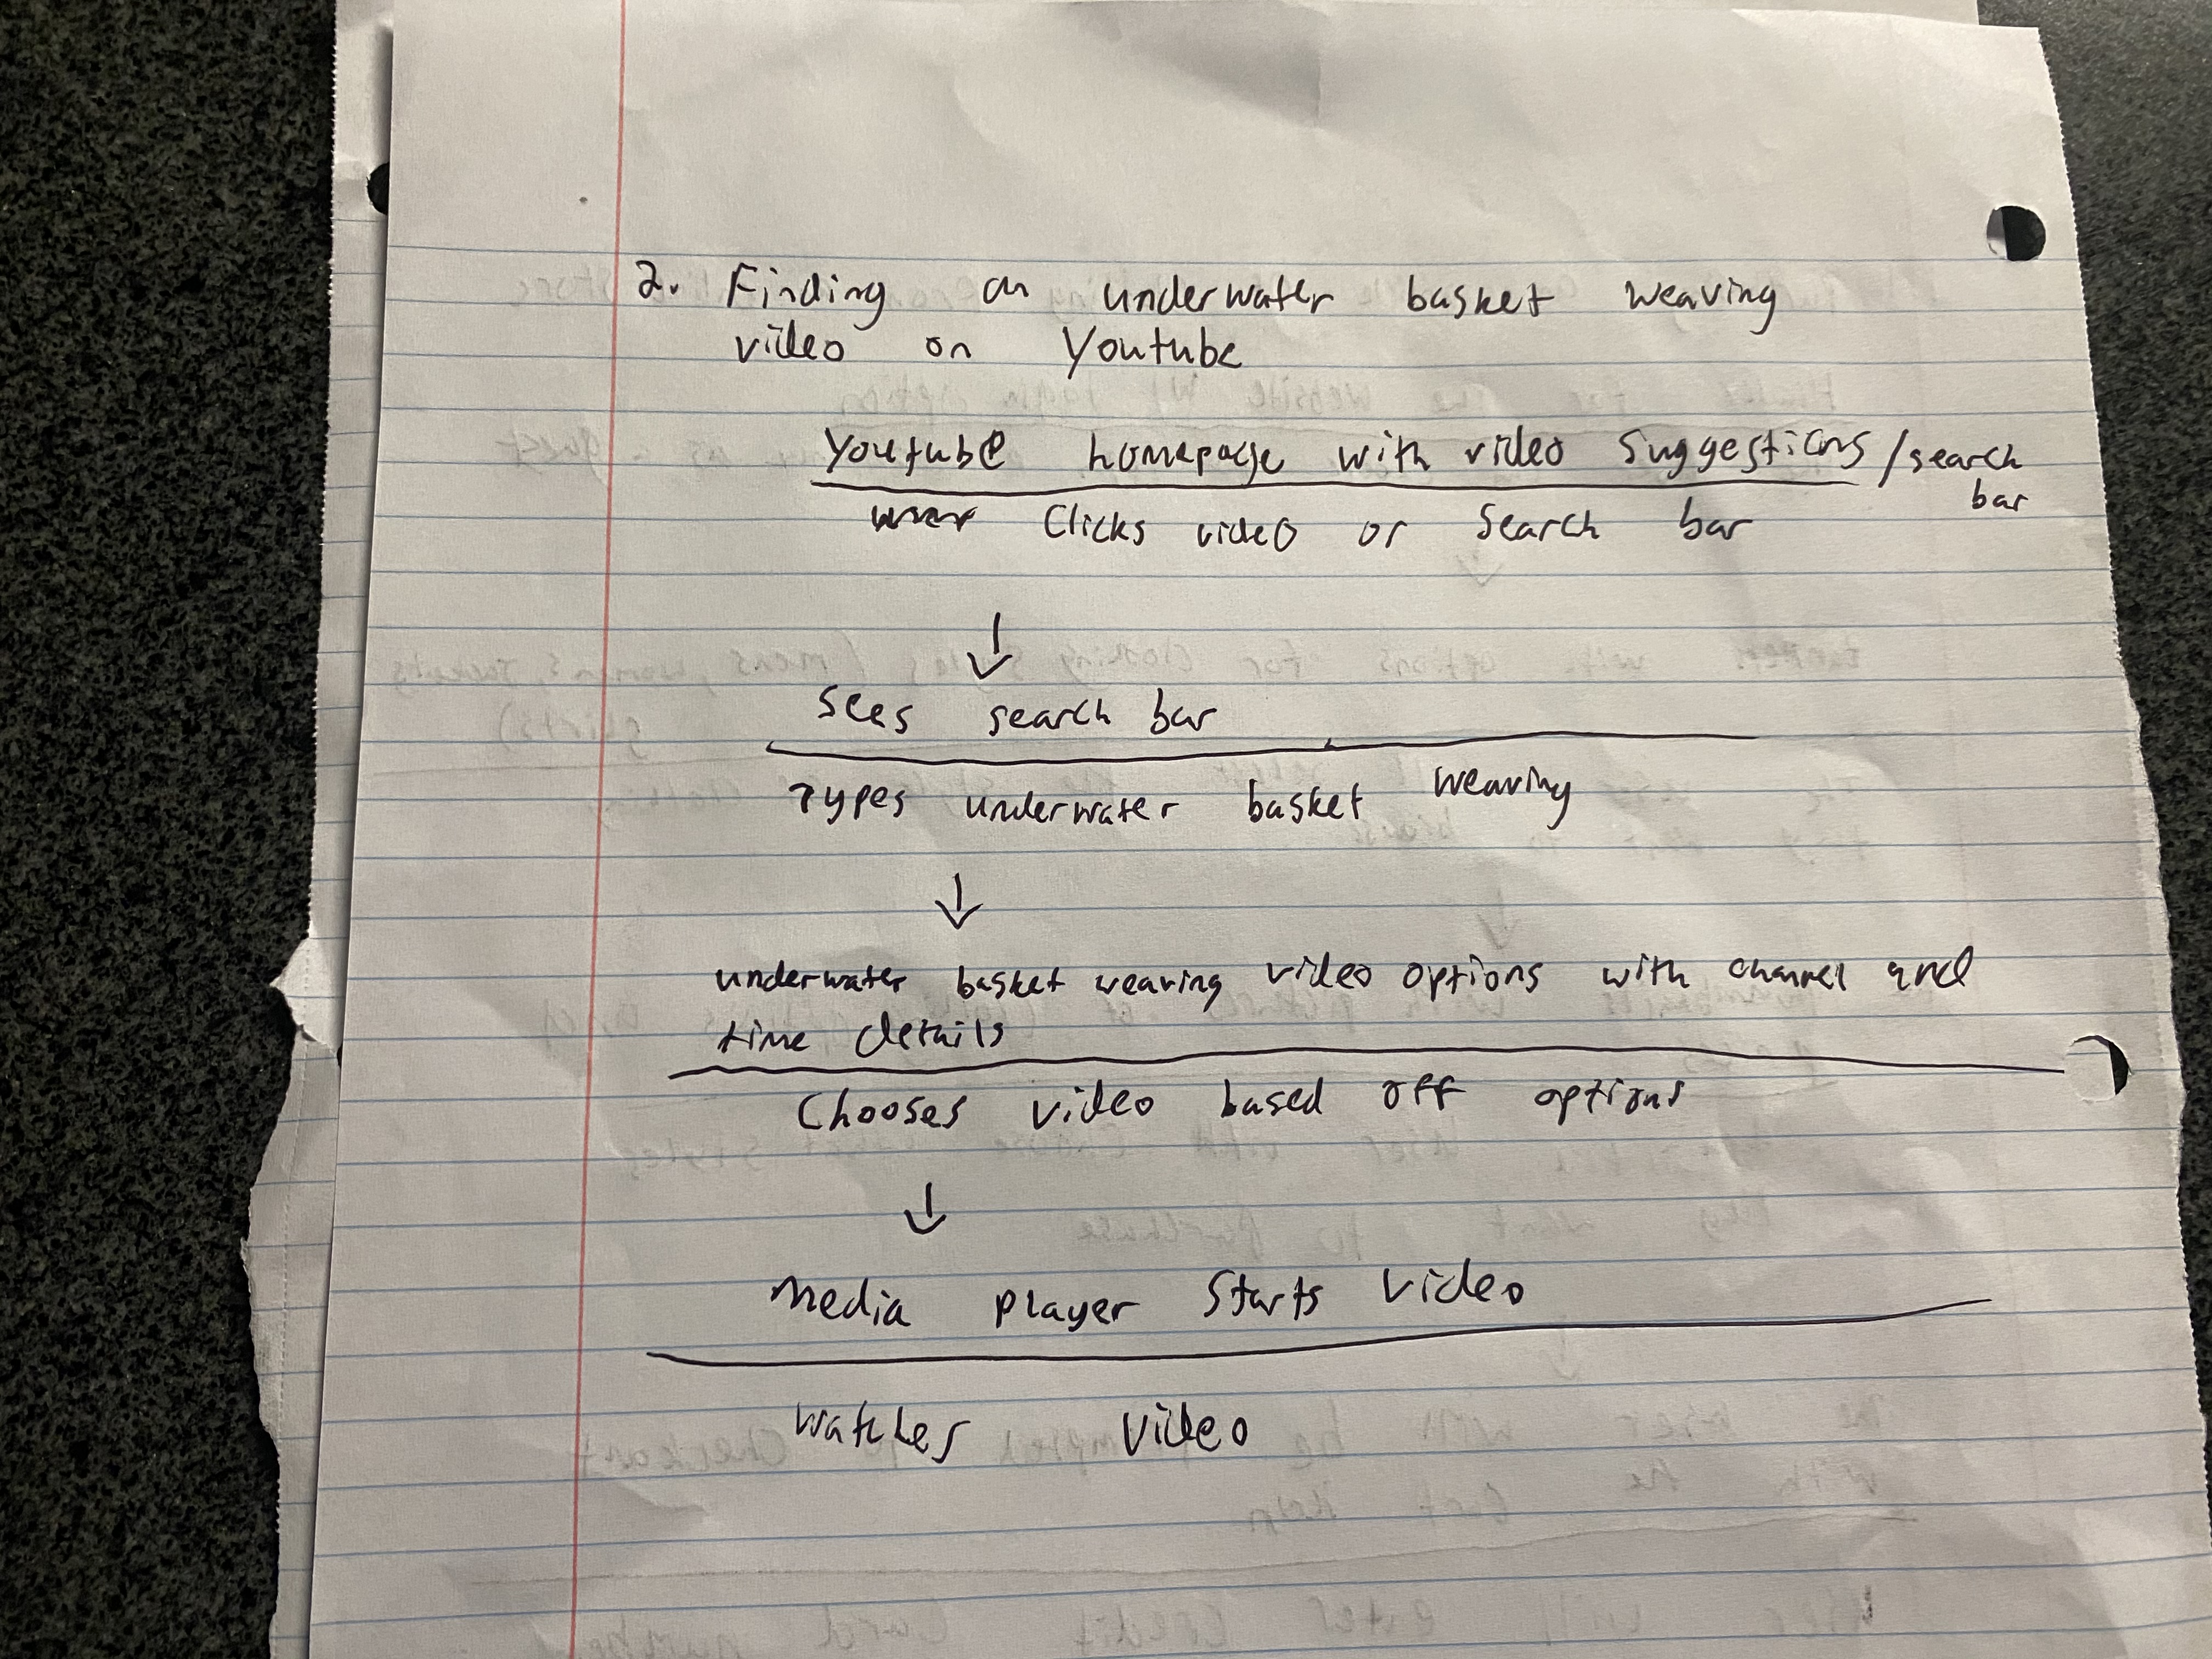 2. Finding an underwater basket weaving
video on Youtube
Youtube homepage with video suggestions/search
bar
Clicks video or search bar
↓
Sees search bar
Types underwater basket weaving
↓
underwater basket weaving video options with channel and
time details
Chooses video based off options
↓
Media player starts video
watches video